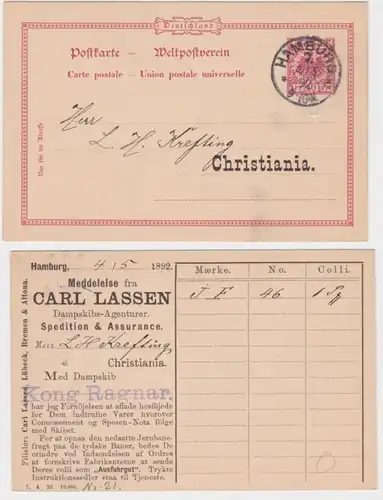 Deutschland
Postkarte – Weltpostverein
Carte postale – Union postale universelle
Nur für die Adresse
HAMBURG
Herr
L. H. Krefting
Christiania.
Hamburg, 4/5 1892.
Meddelelse fra
CARL LASSEN
Dampskibs-Agenturer.
Spedition & Assurance.
Herr L H Krefting
Christiania.
Med Dampskib
Kong Ragnar.
har jeg Fornöielsen at aflade hosföiede
for Dem indtrufne Varer hvorover
Connossement og Spesen-Nota fölge
med Skibet.
For at opnaa den nedsatte Jernbane-
fragt paa de tydske Baner, bedes De
erindre ved Indsendelsen af Ordres
at foreskrive Fabrikanterne at sende
Deres colli som „Ausfuhrgut". Trykte
Instruktionssedler staa til Tjeneste.
Filialer: Carl Lassen, Lübeck, Bremen & Altona.
Mærke. No. Colli.
J F 46 1